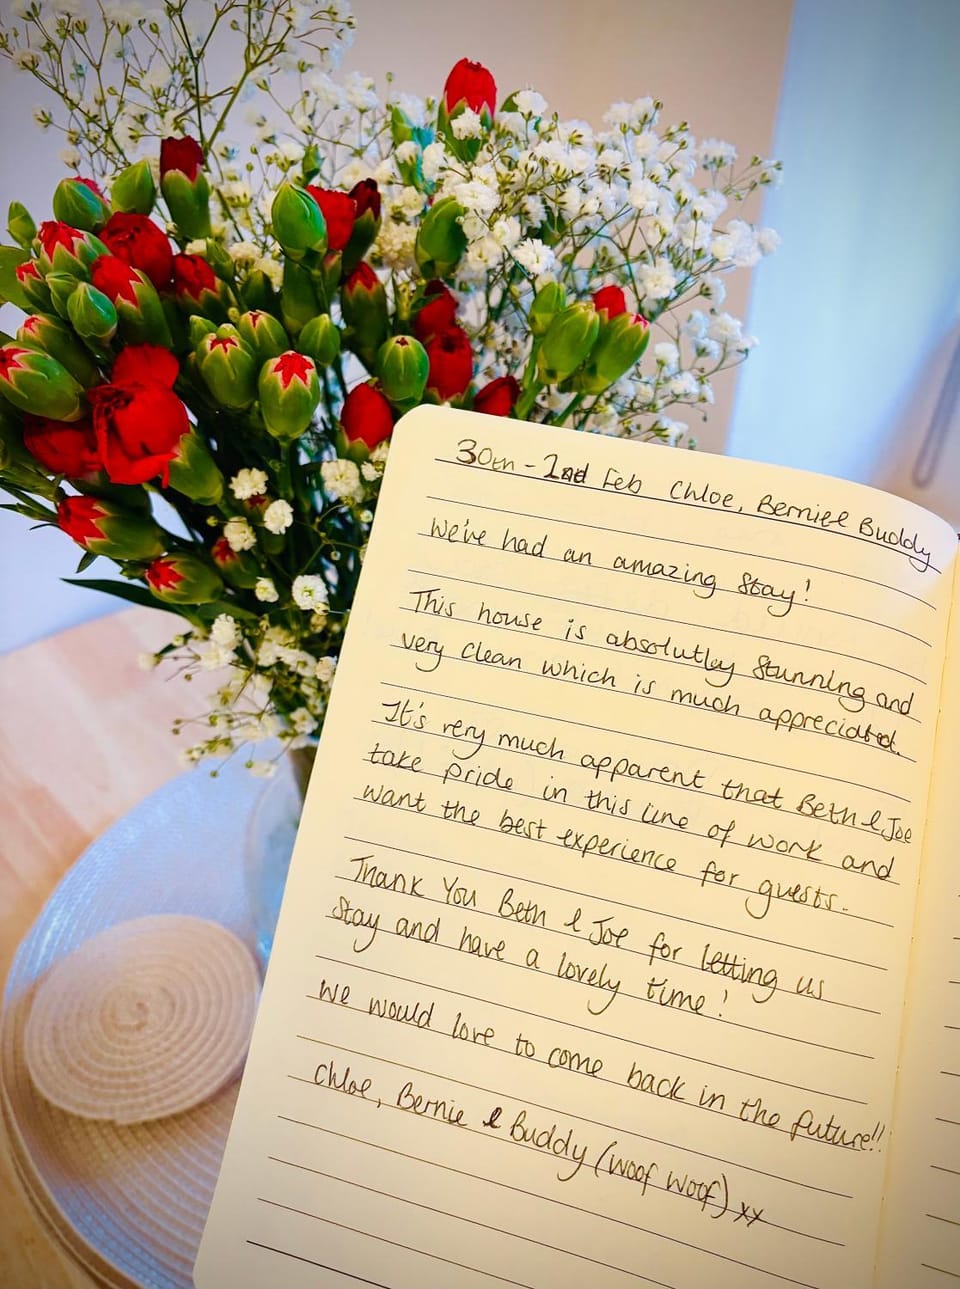 30th - 2nd Feb Chloe, Bernie & Buddy
We've had an amazing stay!
This house is absolutley stunning and
very clean which is much appreciated.
It's very much apparent that Beth & Joe
take pride in this line of work and
want the best experience for guests.
Thank You Beth & Joe for letting us
stay and have a lovely time!
We would love to come back in the future!!
Chloe, Bernie & Buddy (woof woof) xx